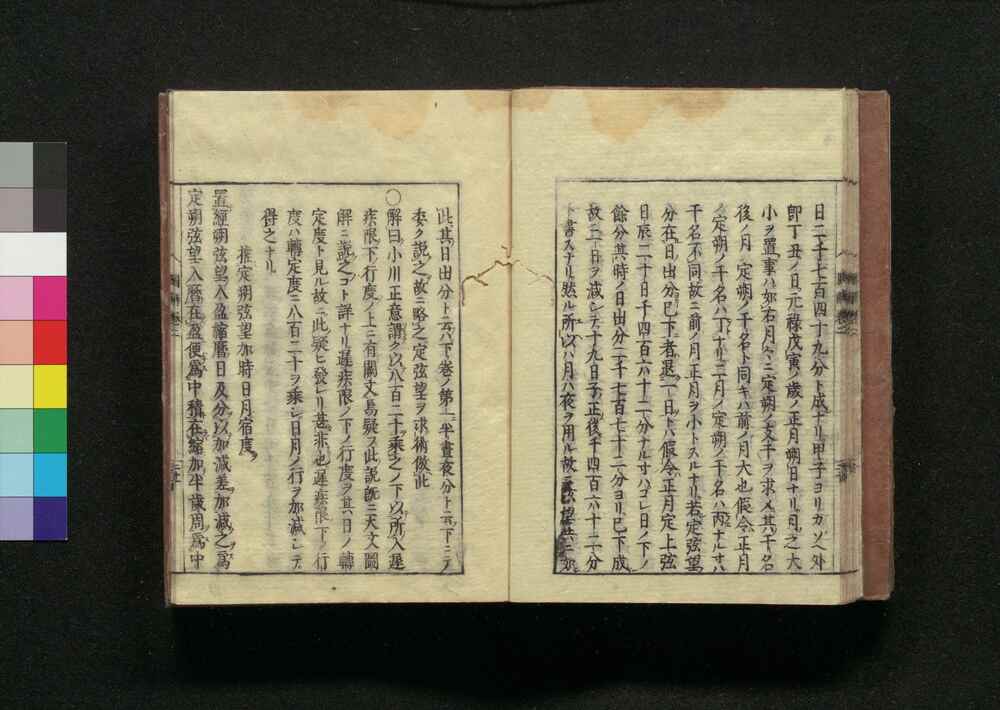 日二千七百四十九分ト成ナリ甲子ヨリカソヘ外
即丁丑ノ日元禄戊寅ノ歳ノ正月朔日ナリ月之大
小ヲ置事ハ如右月々ニ定朔ノ支干ヲ求メ其干名
後ノ月ノ定朔ノ干名ト同キハ前ノ月大也假令正月
ノ定朔ノ干名ハ丁ナリ二月ノ定朔ノ干名ハ丙ナルユヘ
干名不同故ニ前ノ月正月ヲ小トスルナリ若定弦望
分在日出分已下者退一日トハ假令正月定上弦
日辰二十日千四百六十二分ナルヿハコレ日ノ下ノ
餘分其時ノ日出分二千七百七十二分ヨリ已下成
故ニ一日ヲ減シテ十九日子正後千四百六十二分
ト書スナリ然ル所以ハ月ハ夜ヲ用ル故
此其日出分ト云ハ下巻ノ第二半晝夜分ト云下ニテ
委ク説之故ニ略之定弦望ヲ求術倣此
○解曰小川正意謂ク以八百二十乗之ノ下以所入遲
疾限下ノ行度ノ上ニ有闕文易疑フ此説既ニ天文圖
解ニ説之コト詳ナリ遲疾限ノ下ノ行度ヲ其日ノ轉
定度ト見ル故ニ此疑ヒ發レリ甚非也遲疾限下ノ行
度ハ轉定度ニ八百二十ヲ乗シ日月ノ行ヲ加減シテ
得之ナリ
推定朔弦望加時日月宿度
置經朔弦望入盈縮曆日及分以加減差加減之爲
定朔弦望入曆在盈便爲中積在縮加半歲周爲中